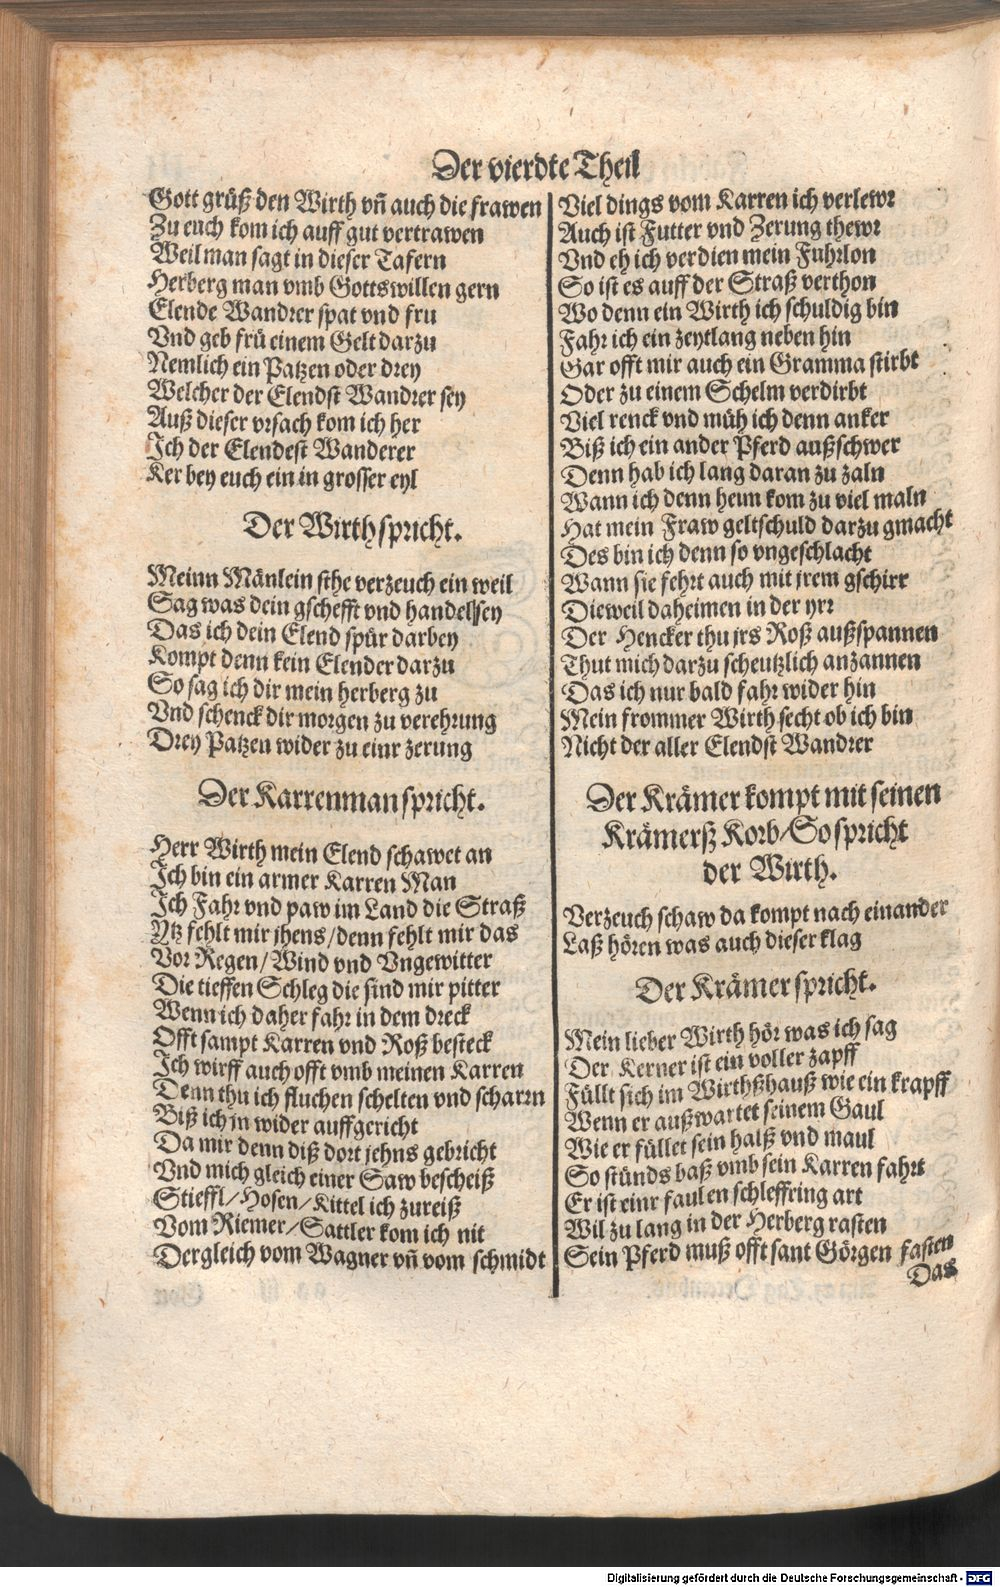 Der vierdte Theil
Gott grüß den Wirth vn̄ auch die frawen
Zu euch kom ich auff gut vertrawen
Weil man sagt in dieser Tafern
Herberg man vmb Gotts willen gern
Elende Wandrer spat vnd fru
Vnd geb frü einem Gelt darzu
Nemlich ein Patzen oder drey
Welcher der Elendst Wandrer sey
Auß dieser vrsach kom ich her
Ich der Elendest Wanderer
Ker bey euch ein in grosser eyl
Der Wirth spricht.
Meinn Mänlein sthe verzeuch ein weil
Sag was dein gschefft vnd handel sey
Das ich dein Elend spür darbey
Kompt denn kein Elender darzu
So sag ich dir mein herberg zu
Vnd schenck dir morgen zu verehrung
Drey Patzen wider zu einr zerung
Der Karrenman spricht.
Herr Wirth mein Elend schawet an
Ich bin ein armer Karren Man
Ich Fahr vnd paw im Land die Straß
Ytz fehlt mir jhens/denn fehlt mir das
Vor Regen/Wind vnd Vngewitter
Die tieffen Schleg die sind mir pitter
Wenn ich daher fahr in dem dreck
Offt sampt Karren vnd Roß besteck
Ich wirff auch offt vmb meinen Karren
Denn thu ich fluchen schelten vnd scharrn
Biß ich jn wider auffgericht
Da mir denn diß dort jehns gebricht
Vnd mich gleich einer Saw bescheiß
Stieffl/Hosen/Kittel ich zureiß
Vom Riemer/Sattler kom ich nit
Dergleich vom Wagner vn̄ vom schmidt
Viel dings vom Karren ich verlewr
Auch ist Futter vnd Zerung thewr
Vnd eh ich verdien mein Fuhrlon
So ist es auff der Straß verthon
Wo denn ein Wirth ich schuldig bin
Fahr ich ein zeytlang neben hin
Gar offt mir auch ein Gramma stirbt
Oder zu einem Schelm verdirbt
Viel renck vnd müh ich denn anker
Biß ich ein ander Pferd außschwer
Denn hab ich lang daran zu zaln
Wann ich denn heim kom zu viel maln
Hat mein Fraw geltschuld darzu gmacht
Des bin ich denn so vngeschlacht
Wann sie fehrt auch mit jrem gschirr
Dieweil daheimen in der yrr
Der Hencker thu jrs Roß außspannen
Thut mich darzu scheutzlich anzannen
Das ich nur bald fahr wider hin
Mein frommer Wirth secht ob ich bin
Nicht der aller Elendst Wandrer
Der Krämer kompt mit seinen
Krämerß Korb/So spricht
der Wirth.
Verzeuch schaw da kompt nach einander
Laß hören was auch dieser klag
Der Krämer spricht.
Mein lieber Wirth hör was ich sag
Der Kerner ist ein voller zapff
Füllt sich im Wirthßhauß wie ein krapff
Wenn er außwartet seinem Gaul
Wie er füllet sein halß vnd maul
So stünds baß vmb sein Karren fahrt
Er ist einr faulen schleffring art
Wil zu lang in der Herberg rasten
Sein Pferd muß offt sant Görgen fasten
Das
Digitalisierung gefördert durch die Deutsche Forschungsgemeinschaft - DFG